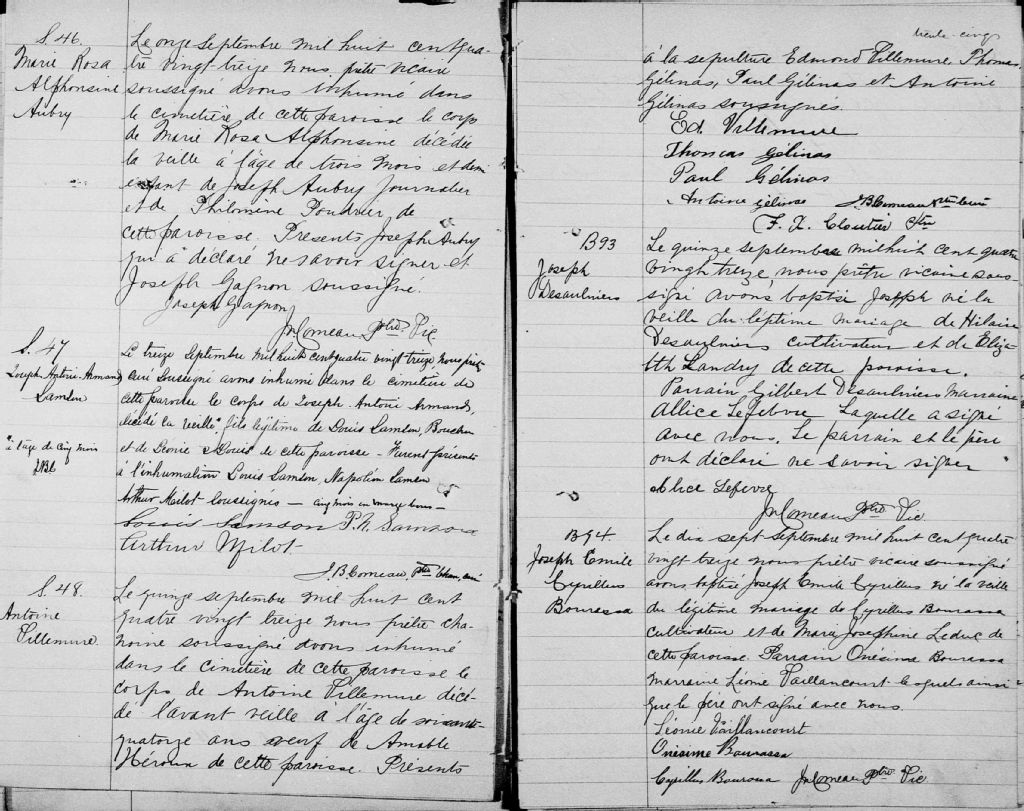 S. 46.
Marie Rosa
Alphonsine
Aubry
Le onze septembre mil huit cent qua-
tre vingt-treize nous, prêtre vicaire
soussigné avons inhumé dans
le cimetière de cette paroisse le corps
de Marie Rosa Alphonsine décédée
la veille à l'âge de trois mois et demi
enfant de Joseph Aubry Journalier
et de Philomène Poudrier de
cette paroisse. Présents Joseph Aubry
qui a déclaré ne savoir signer et
Joseph Gagnon soussigné.
Joseph Gagnon
Jn Comeau Ptre Vic
S. 47
Joseph Antoine Armand
Samson
à l'âge de cinq mois
JBC
Le treize Septembre mil huit cent quatre vingt treize nous prêtre
curé soussigné avons inhumé dans le cimetière de
cette paroisse le corps de Joseph Antoine Armand,
décédé la veille, fils légitime de Louis Samson, Boucher
et de Léonie de cette paroisse - Furent présents
à l'inhumation Louis Samson, Napoléon Samson
Arthur Milot soussignés — cinq mois en marge bons —
Louis Samson P. N. Samson
Arthur Milot
J. B. Comeau, Ptre Chan, curé
S. 48.
Antoine
Villemure
Le quinze septembre mil huit cent
quatre vingt treize nous prêtre cha-
noine soussigné avons inhumé
dans le cimetière de cette paroisse le
corps de Antoine Villemure décé-
dé l'avant veille à l'âge de soixante
quatorze ans veuf de Amable
Héroux de cette paroisse. Présents
trente-cinq
à la sépulture Edmond Villemure, Thomas
Gélinas, Paul Gélinas et Antoine
Gélinas soussignés.
Ed. Villemure
Thomas Gélinas
Paul Gélinas
Antoine Gélinas J. B. Comeau Ptre curé
F. X. Cloutier Ptre
B93
Joseph
Desaulniers
Le quinze septembre mil huit cent quatre
vingt treize, nous prêtre vicaire sous-
signé avons baptisé Joseph né la
veille du légitime mariage de Hilaire
Desaulniers cultivateur et de Eliza-
beth Landry de cette paroisse.
Parrain, Gilbert Desaulniers marraine
Allice Lefebvre laquelle a signé
avec nous. Le parrain et le père
ont déclaré ne savoir signer
Alice Lefevre
Jn Comeau Ptre Vic.
B94
Joseph Emile
Cyrillus
Bourassa
Le dix sept septembre mil huit cent quatre
vingt treize nous prêtre vicaire soussigné
avons baptisé Joseph Emile Cyrillus né la veille
du légitime mariage de Cyrillus Bourassa
cultivateur et de Marie Josephine Leduc de
cette paroisse. Parrain Onésime Bourassa
marraine Léonie Vaillancourt lesquels ainsi
que le père ont signé avec nous.
Léonie Vaillancourt
Onésime Bourassa
Cyrillus Bourassa Jn Comeau Ptre Vic